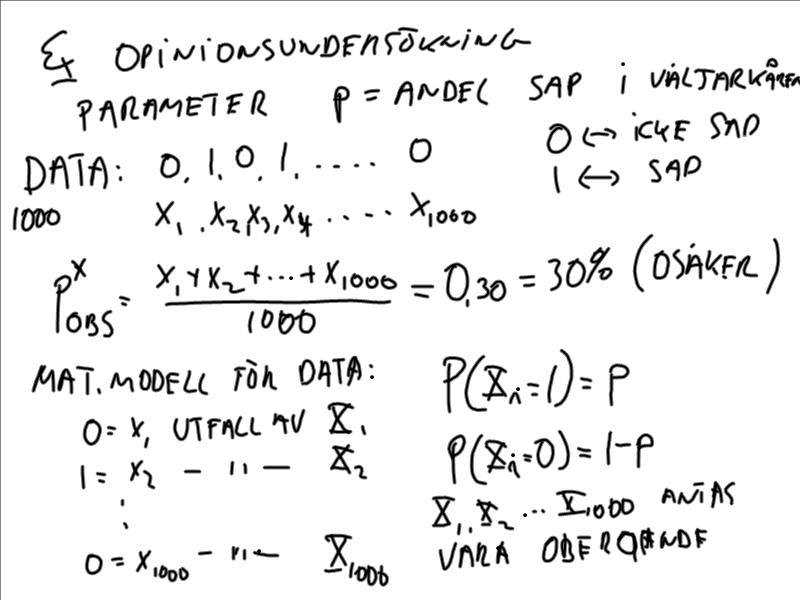 Ex OPINIONSUNDERSÖKNING
PARAMETER p = ANDEL SAP i VÄLJARKÅREN
DATA: 0, 1, 0, 1, .... 0
0 ↔ ICKE SAP
1 ↔ SAP
1000 x₁, x₂, x₃, x₄ ..... x₁₀₀₀
p*OBS = (x₁ + x₂ + ... + x₁₀₀₀) / 1000 = 0,30 = 30% (OSÄKER)
MAT. MODELL FÖR DATA:
0 = x₁ UTFALL AV X₁
1 = x₂ — " — X₂
⋮
0 = x₁₀₀₀ — " — X₁₀₀₀
P(Xᵢ = 1) = p
P(Xᵢ = 0) = 1 - p
X₁, X₂ ... X₁₀₀₀ ANTAS
VARA OBEROENDE